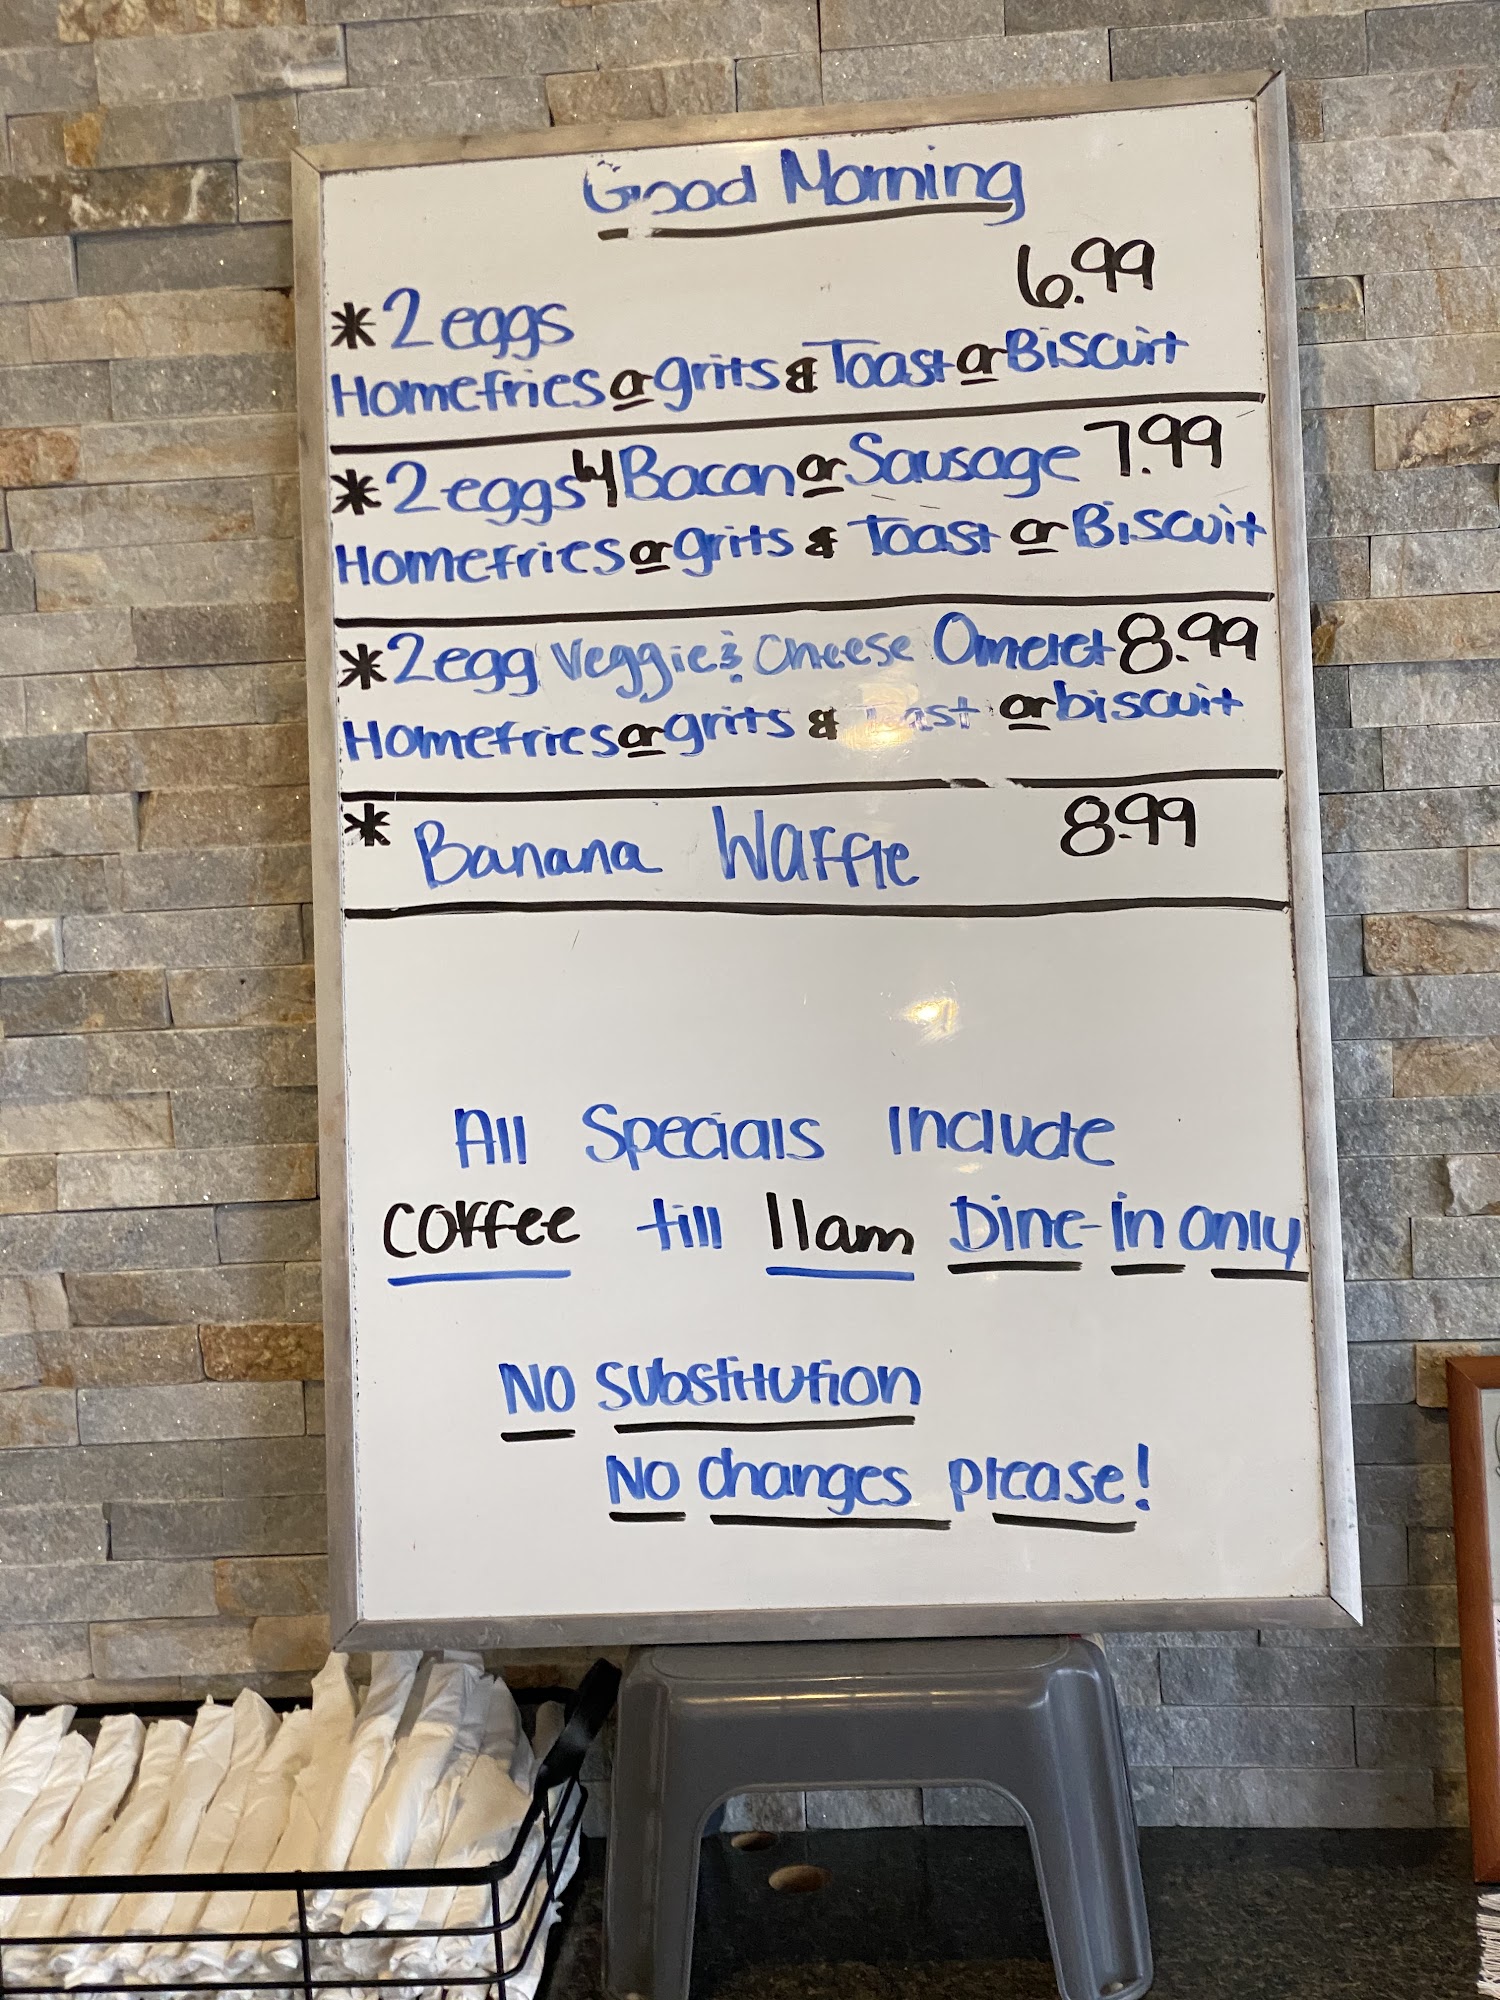 Good Morning
6.99
*2 eggs
Homefries or grits & Toast or Biscuit
*2 eggs w/ Bacon or Sausage 7.99
Homefries or grits & Toast or Biscuit
*2 egg Veggie & Cheese Omelet 8.99
Homefries or grits & or biscuit
* Banana Waffle 8.99
All Specials Include
coffee till 11am Dine-in only
No substitution
No changes please!